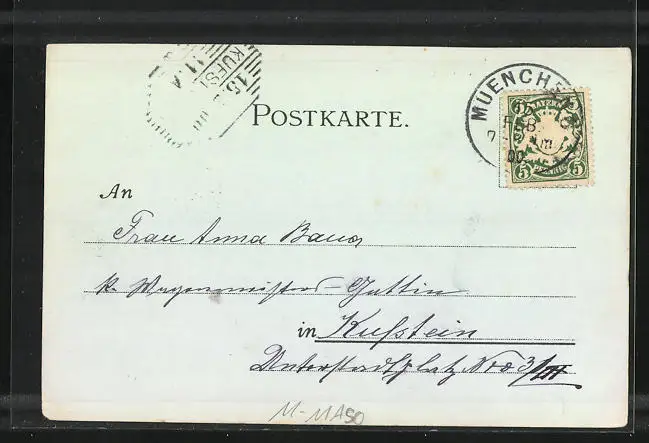 KUFST
15
11 A
00
POSTKARTE.
MUENCHE
FEB
7
00
5 BAYERN 5
5 PFENNIG 5
An
Frau Anna Bauer
k. Wagenmeisters-Gattin
in Kufstein
Unterstadtplatz Nro 3/III
M-MA90